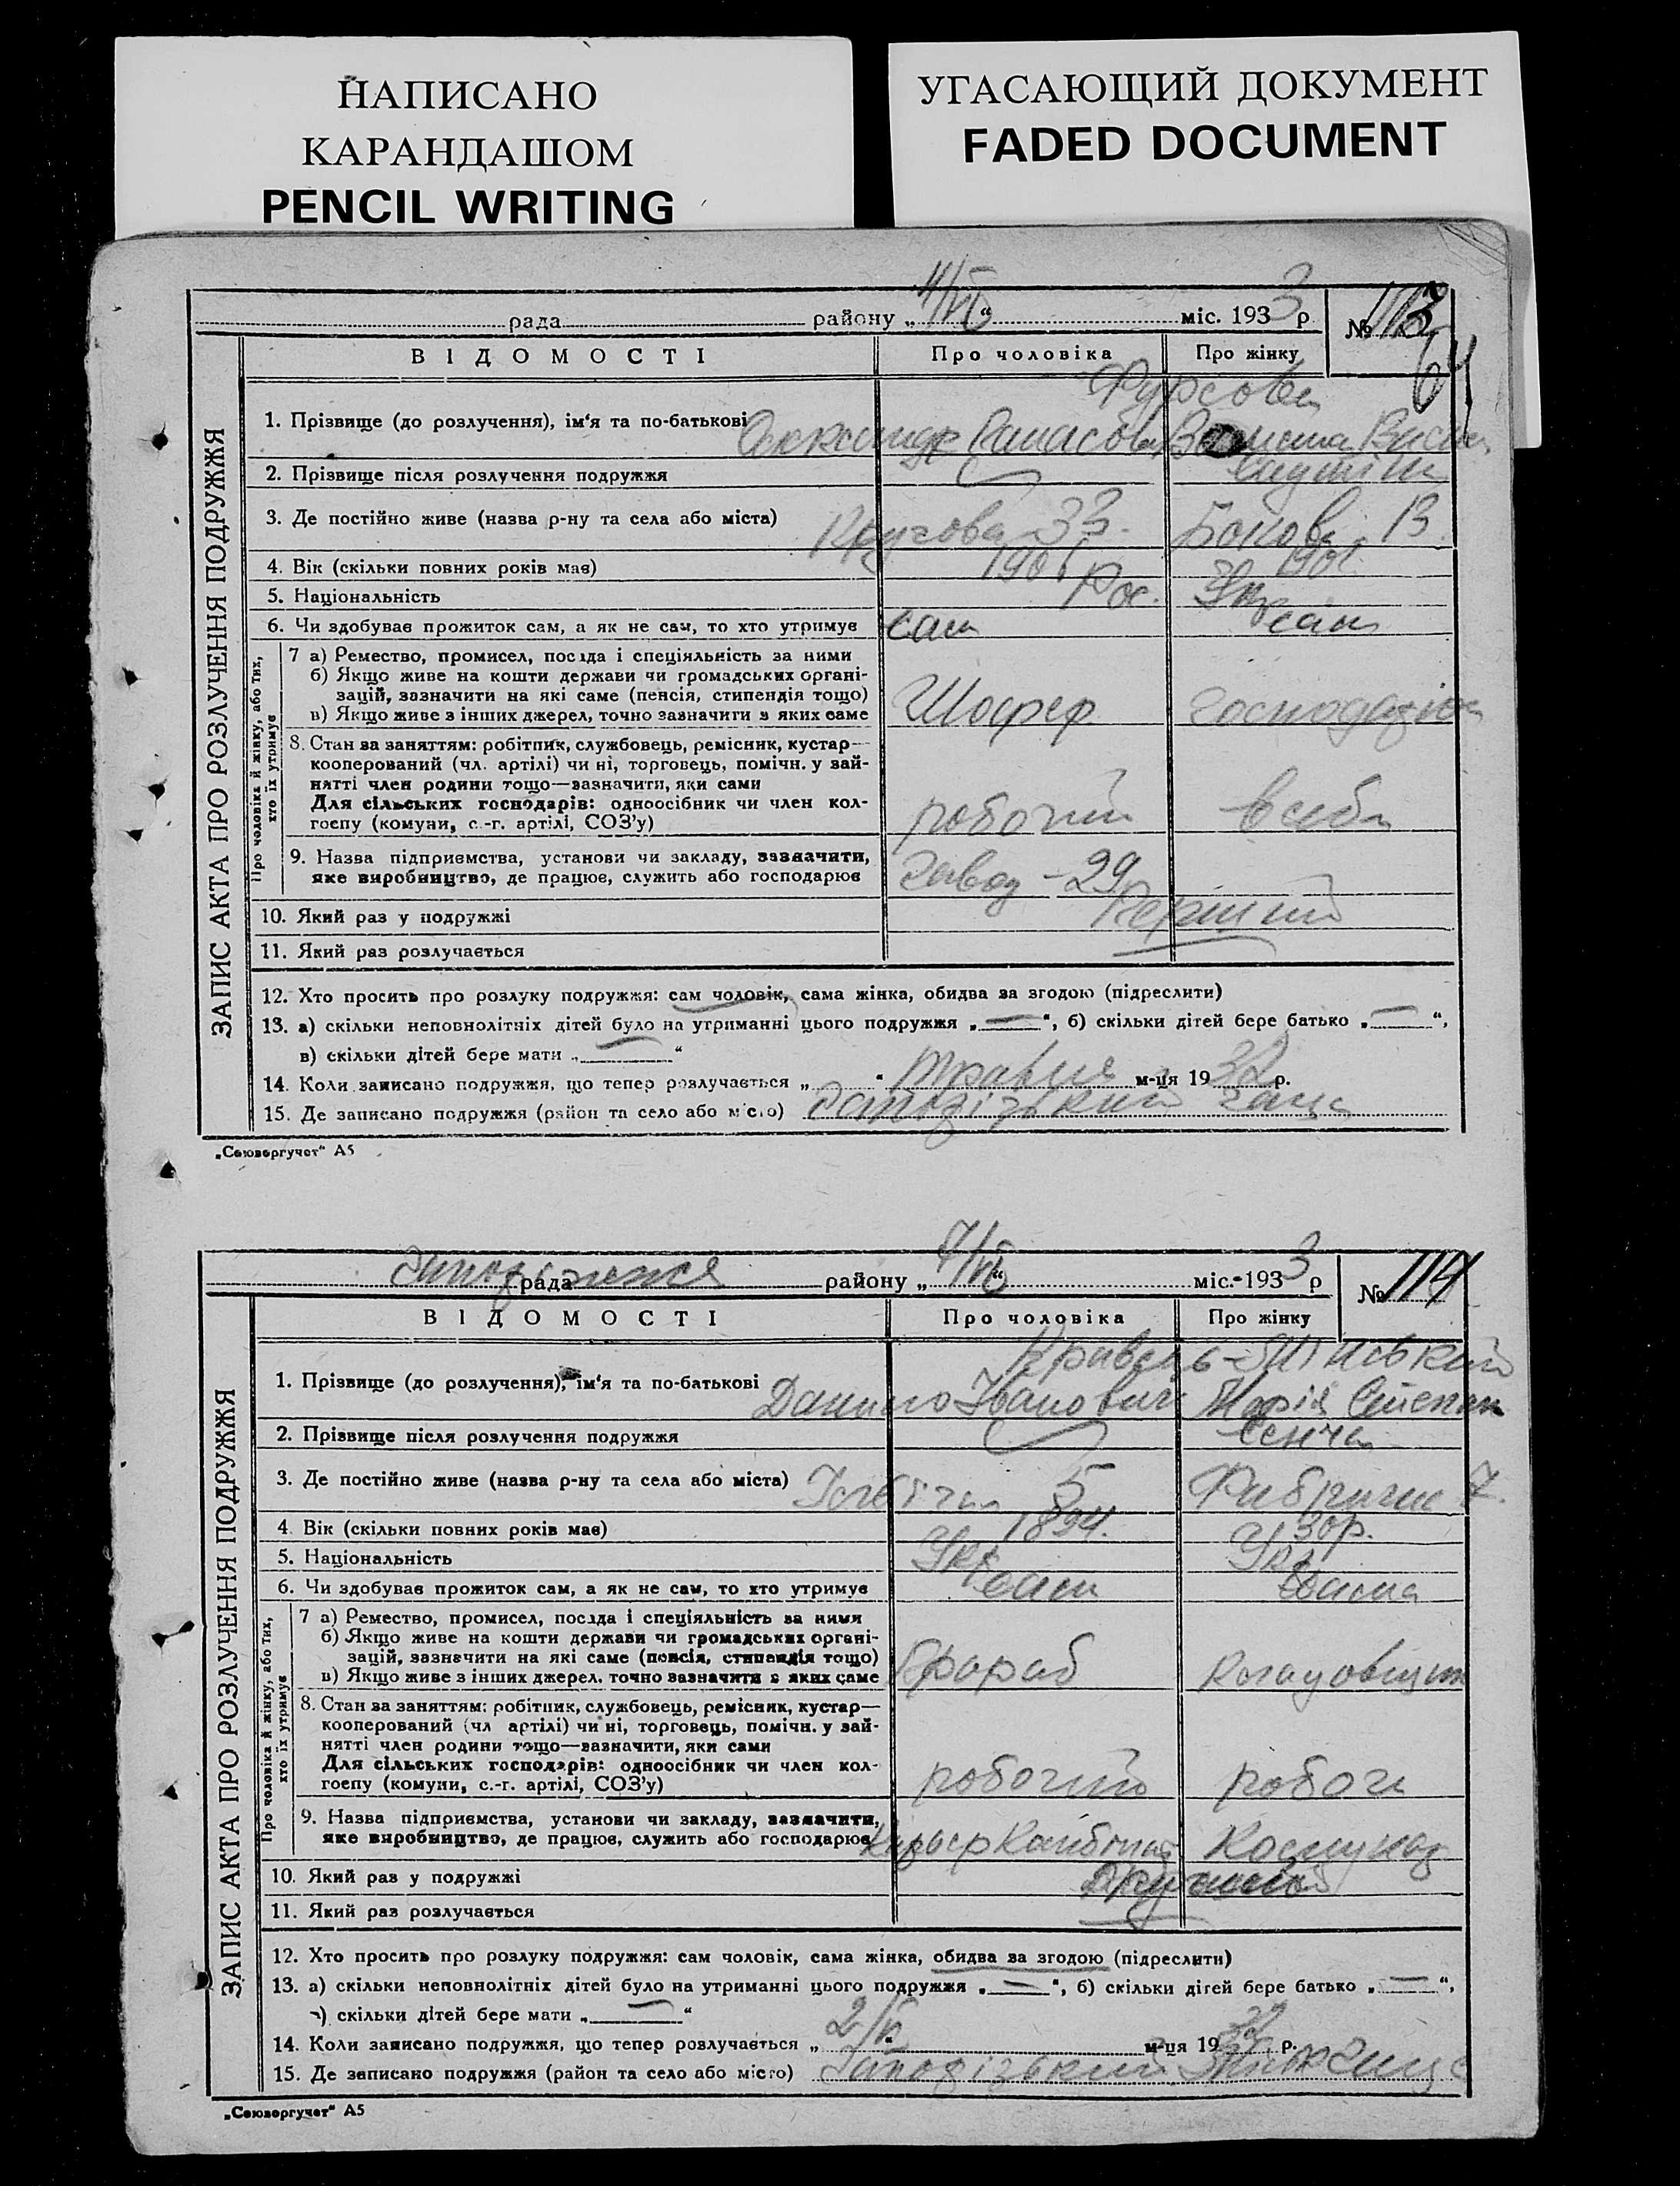 НАПИСАНО
КАРАНДАШОМ
PENCIL WRITING
УГАСАЮЩИЙ ДОКУМЕНТ
FADED DOCUMENT
ЗАПИС АКТА ПРО РОЗЛУЧЕННЯ ПОДРУЖЖЯ
рада району „4/VI“ міс. 1933 р № 113
64
ВІДОМОСТІ Про чоловіка Про жінку
Фурсови
1. Прізвище (до розлучення), ім'я та по-батькові
2. Прізвище після розлучення подружжя
3. Де постійно живе (назва р-ну та села або міста) 33. 13.
4. Вік (скільки повних років має)
5. Національність Рос. Укр
6. Чи здобуває прожиток сам, а як не сам, то хто утримує сам сама
Про чоловіка й жінку, або тих, хто їх утримує
7 а) Ремество, промисел, посада і спеціяльність за ними
б) Якщо живе на кошти держави чи громадських органі-
зацій, зазначити на які саме (пенсія, стипендія тощо)
в) Якщо живе з інших джерел, точно зазначити з яких саме Шофер
8. Стан за заняттям: робітник, службовець, ремісник, кустар—
кооперований (чл. артілі) чи ні, торговець, помічн. у зай-
нятті член родини тощо—зазначити, яки сами
Для сільських господарів: одноосібник чи член кол-
госпу (комуни, с.-г. артілі, СОЗ'у) робочий в себе
9. Назва підприємства, установи чи закладу, зазначити,
яке виробництво, де працює, служить або господарює завод - 29
10. Який раз у подружжі Перший
11. Який раз розлучається
12. Хто просить про розлуку подружжя: сам чоловік, сама жінка, обидва за згодою (підреслити)
13. а) скільки неповнолітніх дітей було на утриманні цього подружжя „—“, б) скільки дітей бере батько „—“,
в) скільки дітей бере мати „—“
14. Коли записано подружжя, що тепер розлучається „ “ травня м-ця 1932 р.
15. Де записано подружжя (район та село або місто) Запорізький загс
„Союзоргучет“ А5
ЗАПИС АКТА ПРО РОЗЛУЧЕННЯ ПОДРУЖЖЯ
Запоріжжя рада району „4/VI“ міс. 1933 р № 114
ВІДОМОСТІ Про чоловіка Про жінку
1. Прізвище (до розлучення), ім'я та по-батькові Данило Іванович Марія Степан
2. Прізвище після розлучення подружжя
3. Де постійно живе (назва р-ну та села або міста) 5 7.
4. Вік (скільки повних років має) 1894. 30р.
5. Національність Укр Укр
6. Чи здобуває прожиток сам, а як не сам, то хто утримує сам сама
Про чоловіка й жінку, або тих, хто їх утримує
7 а) Ремество, промисел, посада і спеціяльність за ними
б) Якщо живе на кошти держави чи громадських органі-
зацій, зазначити на які саме (пенсія, стипендія тощо)
в) Якщо живе з інших джерел, точно зазначити з яких саме Прораб
8. Стан за заняттям: робітник, службовець, ремісник, кустар—
кооперований (чл артілі) чи ні, торговець, помічн. у зай-
нятті член родини тощо—зазначити, яки сами
Для сільських господарів: одноосібник чи член кол-
госпу (комуни, с.-г. артілі, СОЗ'у) робочий робоч
9. Назва підприємства, установи чи закладу, зазначити,
яке виробництво, де працює, служить або господарює
10. Який раз у подружжі
11. Який раз розлучається
12. Хто просить про розлуку подружжя: сам чоловік, сама жінка, обидва за згодою (підреслити)
13. а) скільки неповнолітніх дітей було на утриманні цього подружжя „—“, б) скільки дітей бере батько „—“,
в) скільки дітей бере мати „—“
14. Коли записано подружжя, що тепер розлучається м-ця 19 р.
15. Де записано подружжя (район та село або місто) Запорізький
„Союзоргучет“ А5